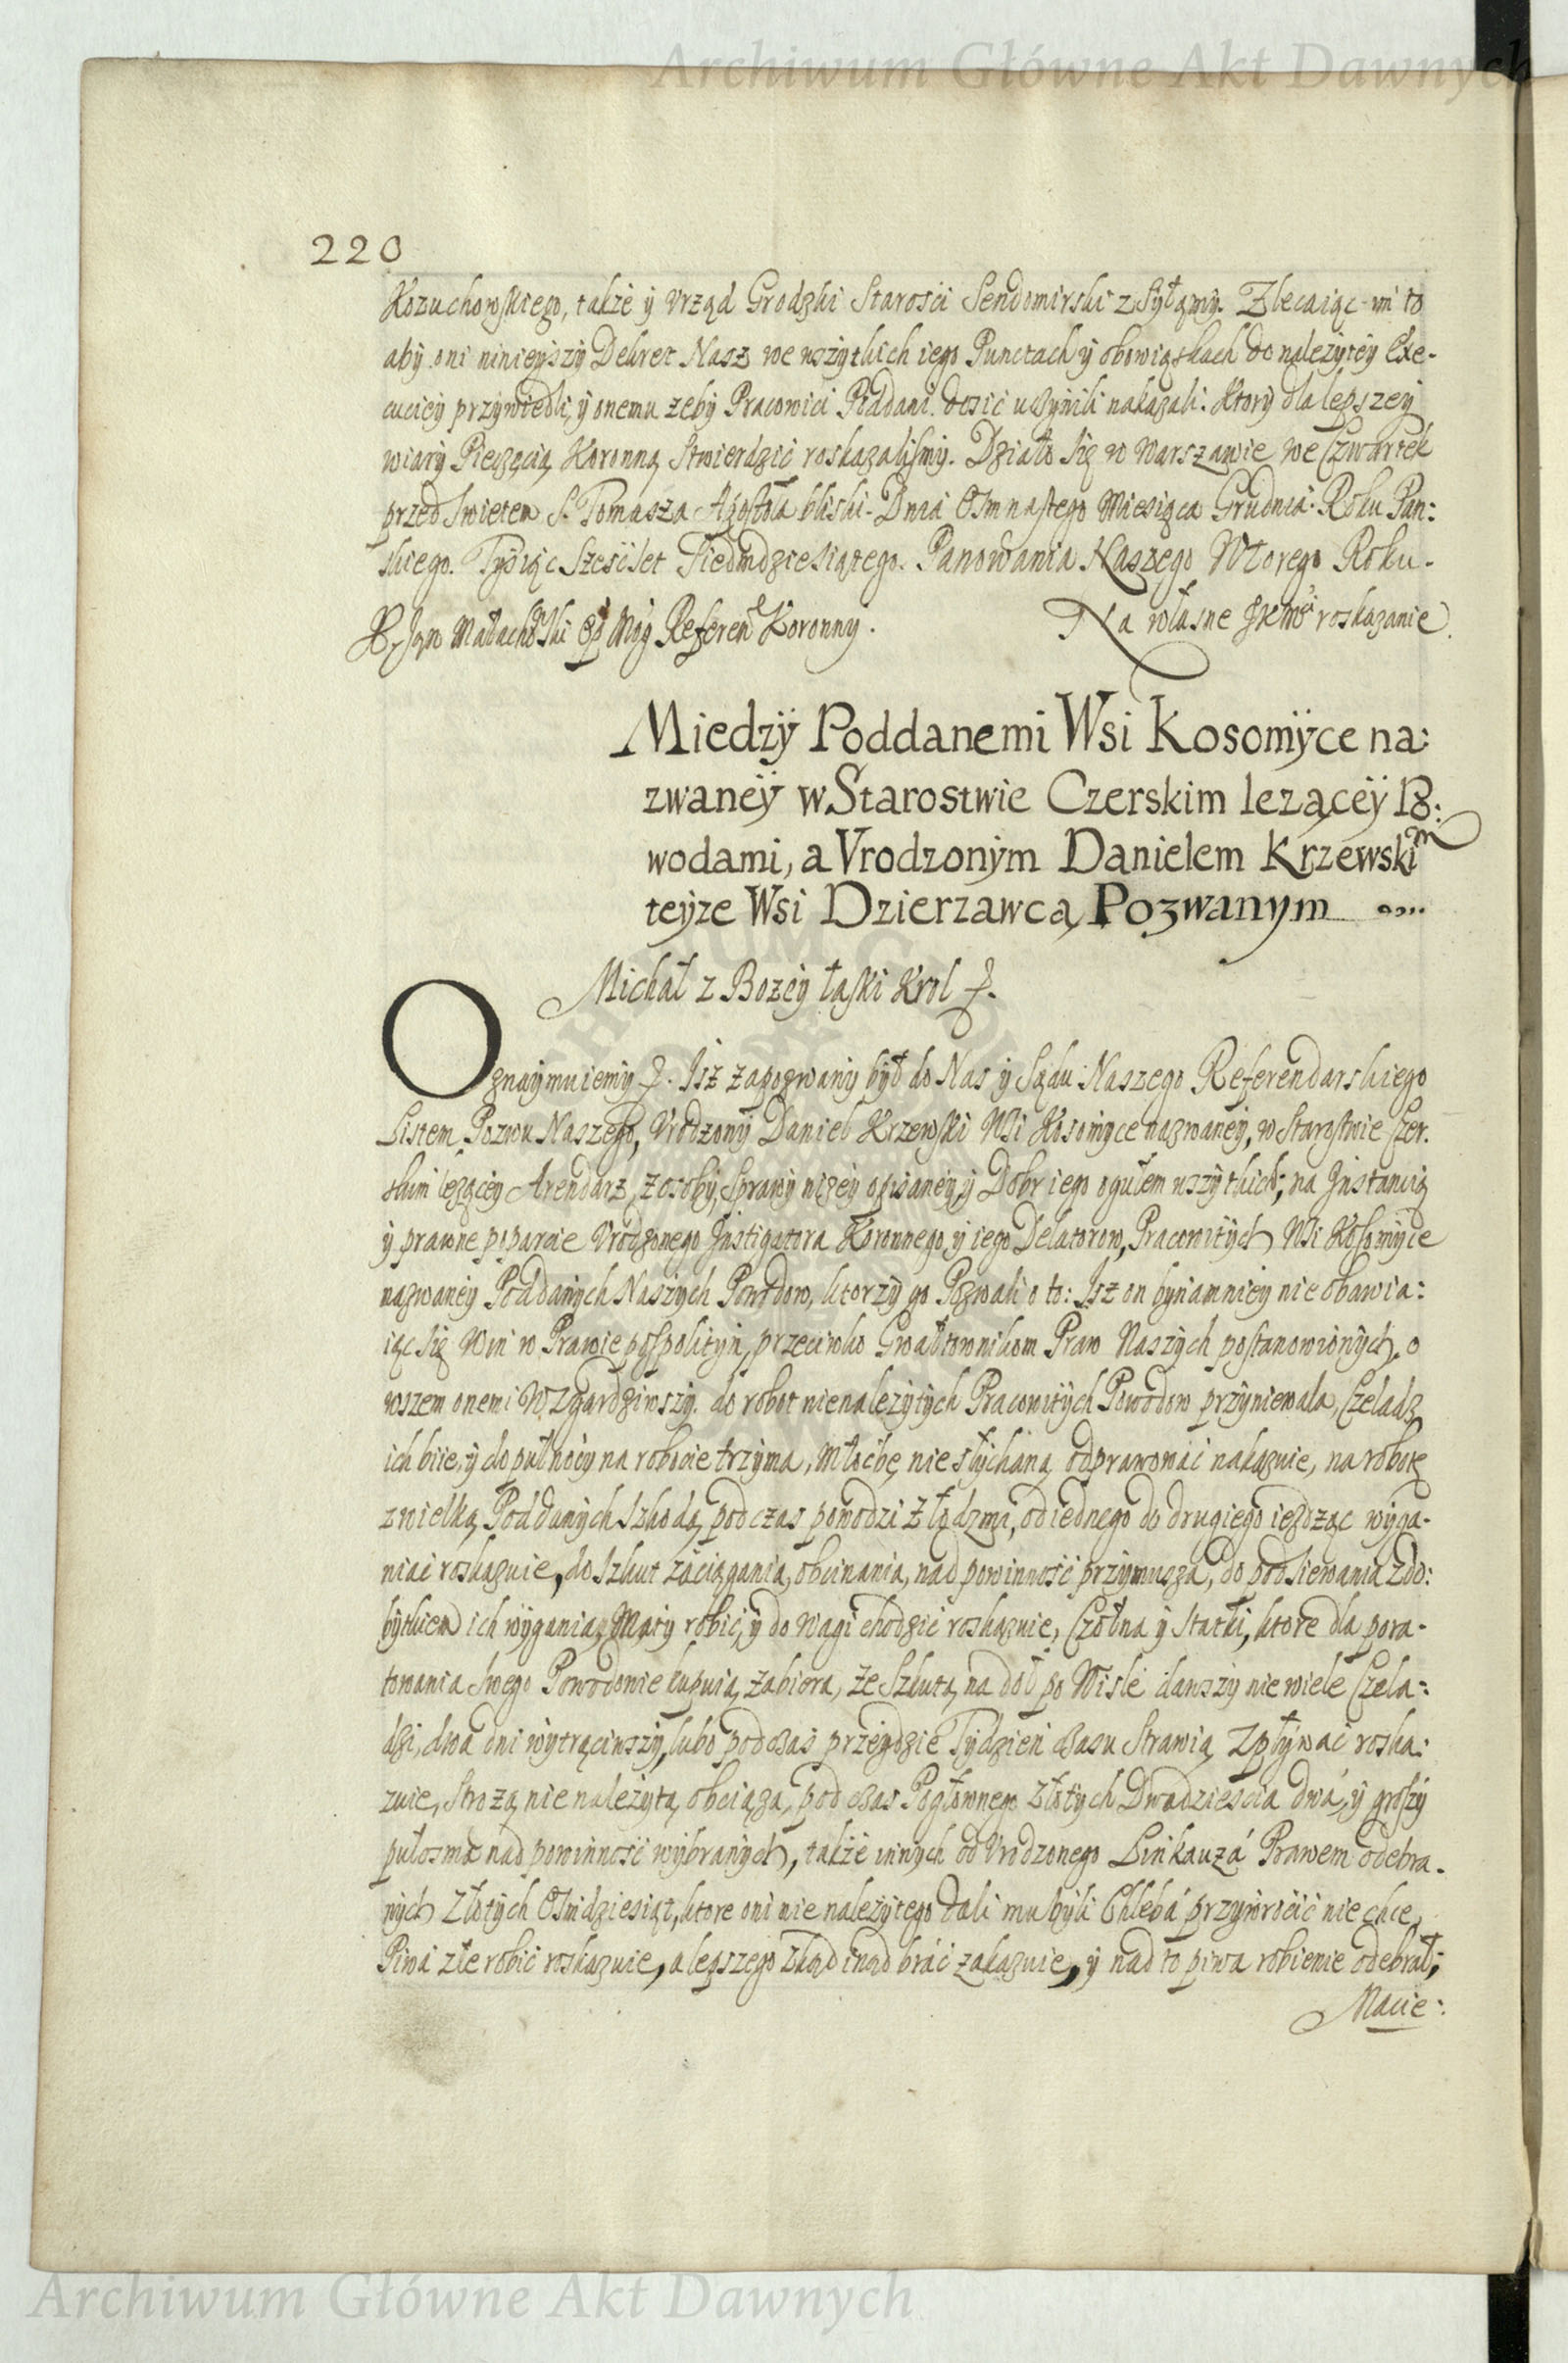 Archiwum Główne Akt Dawnych
220
Kozuchowskiego, takze ÿ Vrząd Grodzki Starosci Sendomirski z Syłąmÿ. Zlecaiąc im to
abÿ oni ninieÿszÿ Dekret Nasz we wszÿtkich iego Punctach ÿ obowiąskach do nalezÿteÿ Exe-
cuciеÿ przÿwiedli, ÿ onemu zebÿ Pracowici Poddani dosić uczÿnili nakazali. Ktorÿ dla lepszeÿ
wiarÿ Pieczęcią Koronną Stwierdzić roskazalismÿ. Działo Się w Warszawie we Czwartek
przed Swietem S. Tomasza Apostoła bliski. Dnia Osmnastego Miesiąca Grudnia. Roku Pan:
skiego. Tÿsiąc Szescset Siedmdziesiątego. Panowania Naszego Wtorego Roku.
X. Jan Małachowski Referen Koronnÿ. Na własne JKMci roskazanie
Miedzÿ Poddanemi Wsi Kosomÿce na:
zwaneÿ w Starostwie Czerskim lezącеÿ Po:
wodami, a Vrodzonÿm Danielem Krzewskim
teÿze Wsi Dzierzawcą Pozwanym
Michał z Bozeÿ łaski Krol &.
Oznaÿmuiemÿ &. Isz zapozwanÿ był do Nas ÿ Sądu Naszego Referendarskiego
Listem Pozwu Naszego, Vrodzonÿ Daniel Krzewski Wsi Kosomÿce nazwaneÿ, w Starostwie Czer.
skim lezącеÿ Arendarz, z osobÿ, Sprawÿ nizeÿ opisaneÿ, ÿ Dobr iego ogułem wszÿtkich, na Jnstancią
ÿ prawne poparcie Vrodzonego Jnstigatora Koronnego, ÿ iego Delatorow, Pracowitÿch Wsi Kosomÿce
nazwaneÿ Poddanÿch Naszÿch Powodow, ktorzÿ go Pozwali o to: Jsz on bÿnamnieÿ nie obawia:
iąc się Win w Prawie pospolitÿm, przeciwko Gwałtownikom Praw Naszÿch postanowionÿch, o
wszem onemi Wzgardziwszÿ. do robot nienalezÿtÿch Pracowitÿch Powodow przÿniewala, Czeladz
ich biie, ÿ do pułnocÿ na robocie trzÿma, Młocbę niesłÿchaną odprawować nakazuie, na robotę
z wielką Poddanÿch Szkodą, podczas powodzi z łodzmi, od iednego do drugiego iezdząc wÿga-
niać roskazuie, do Szkut zaciągania, obcinania, nad powinność przÿmusza, do podsiewania z do:
bÿtkiem ich wÿgania, Matÿ robić, ÿ do Wagi chodzić roskazuie, Czołna ÿ Statki, ktore dla pora-
towania swego Powodowie kupuią, zabiera, ze Szkutą na doł po Wisle dawszÿ niewiele Czela:
dzi, dwa dni wÿtrąciwszÿ, lubo podczas przeÿdzie Tÿdzien czasu Strawią, zpłÿwać roska:
zuie, Strozą nienalezÿtą obciąza, podczas Pogłownego Złotÿch Dwadziescia dwa, ÿ groszÿ
pułosma nad powinność wÿbranÿch, takze innÿch od Vrodzonego Linkauza Prawem odebra-
nÿch Złotÿch Osmdziesiąt, ktore oni nie nalezÿtego dali mu bÿli Chleba przÿwrocić nie chce,
Piwa złe robić roskazuie, a lepszego zkąd inąd brać zakazuie, ÿ nad to piwa robienie odebrał;
Macie:
Archiwum Główne Akt Dawnych